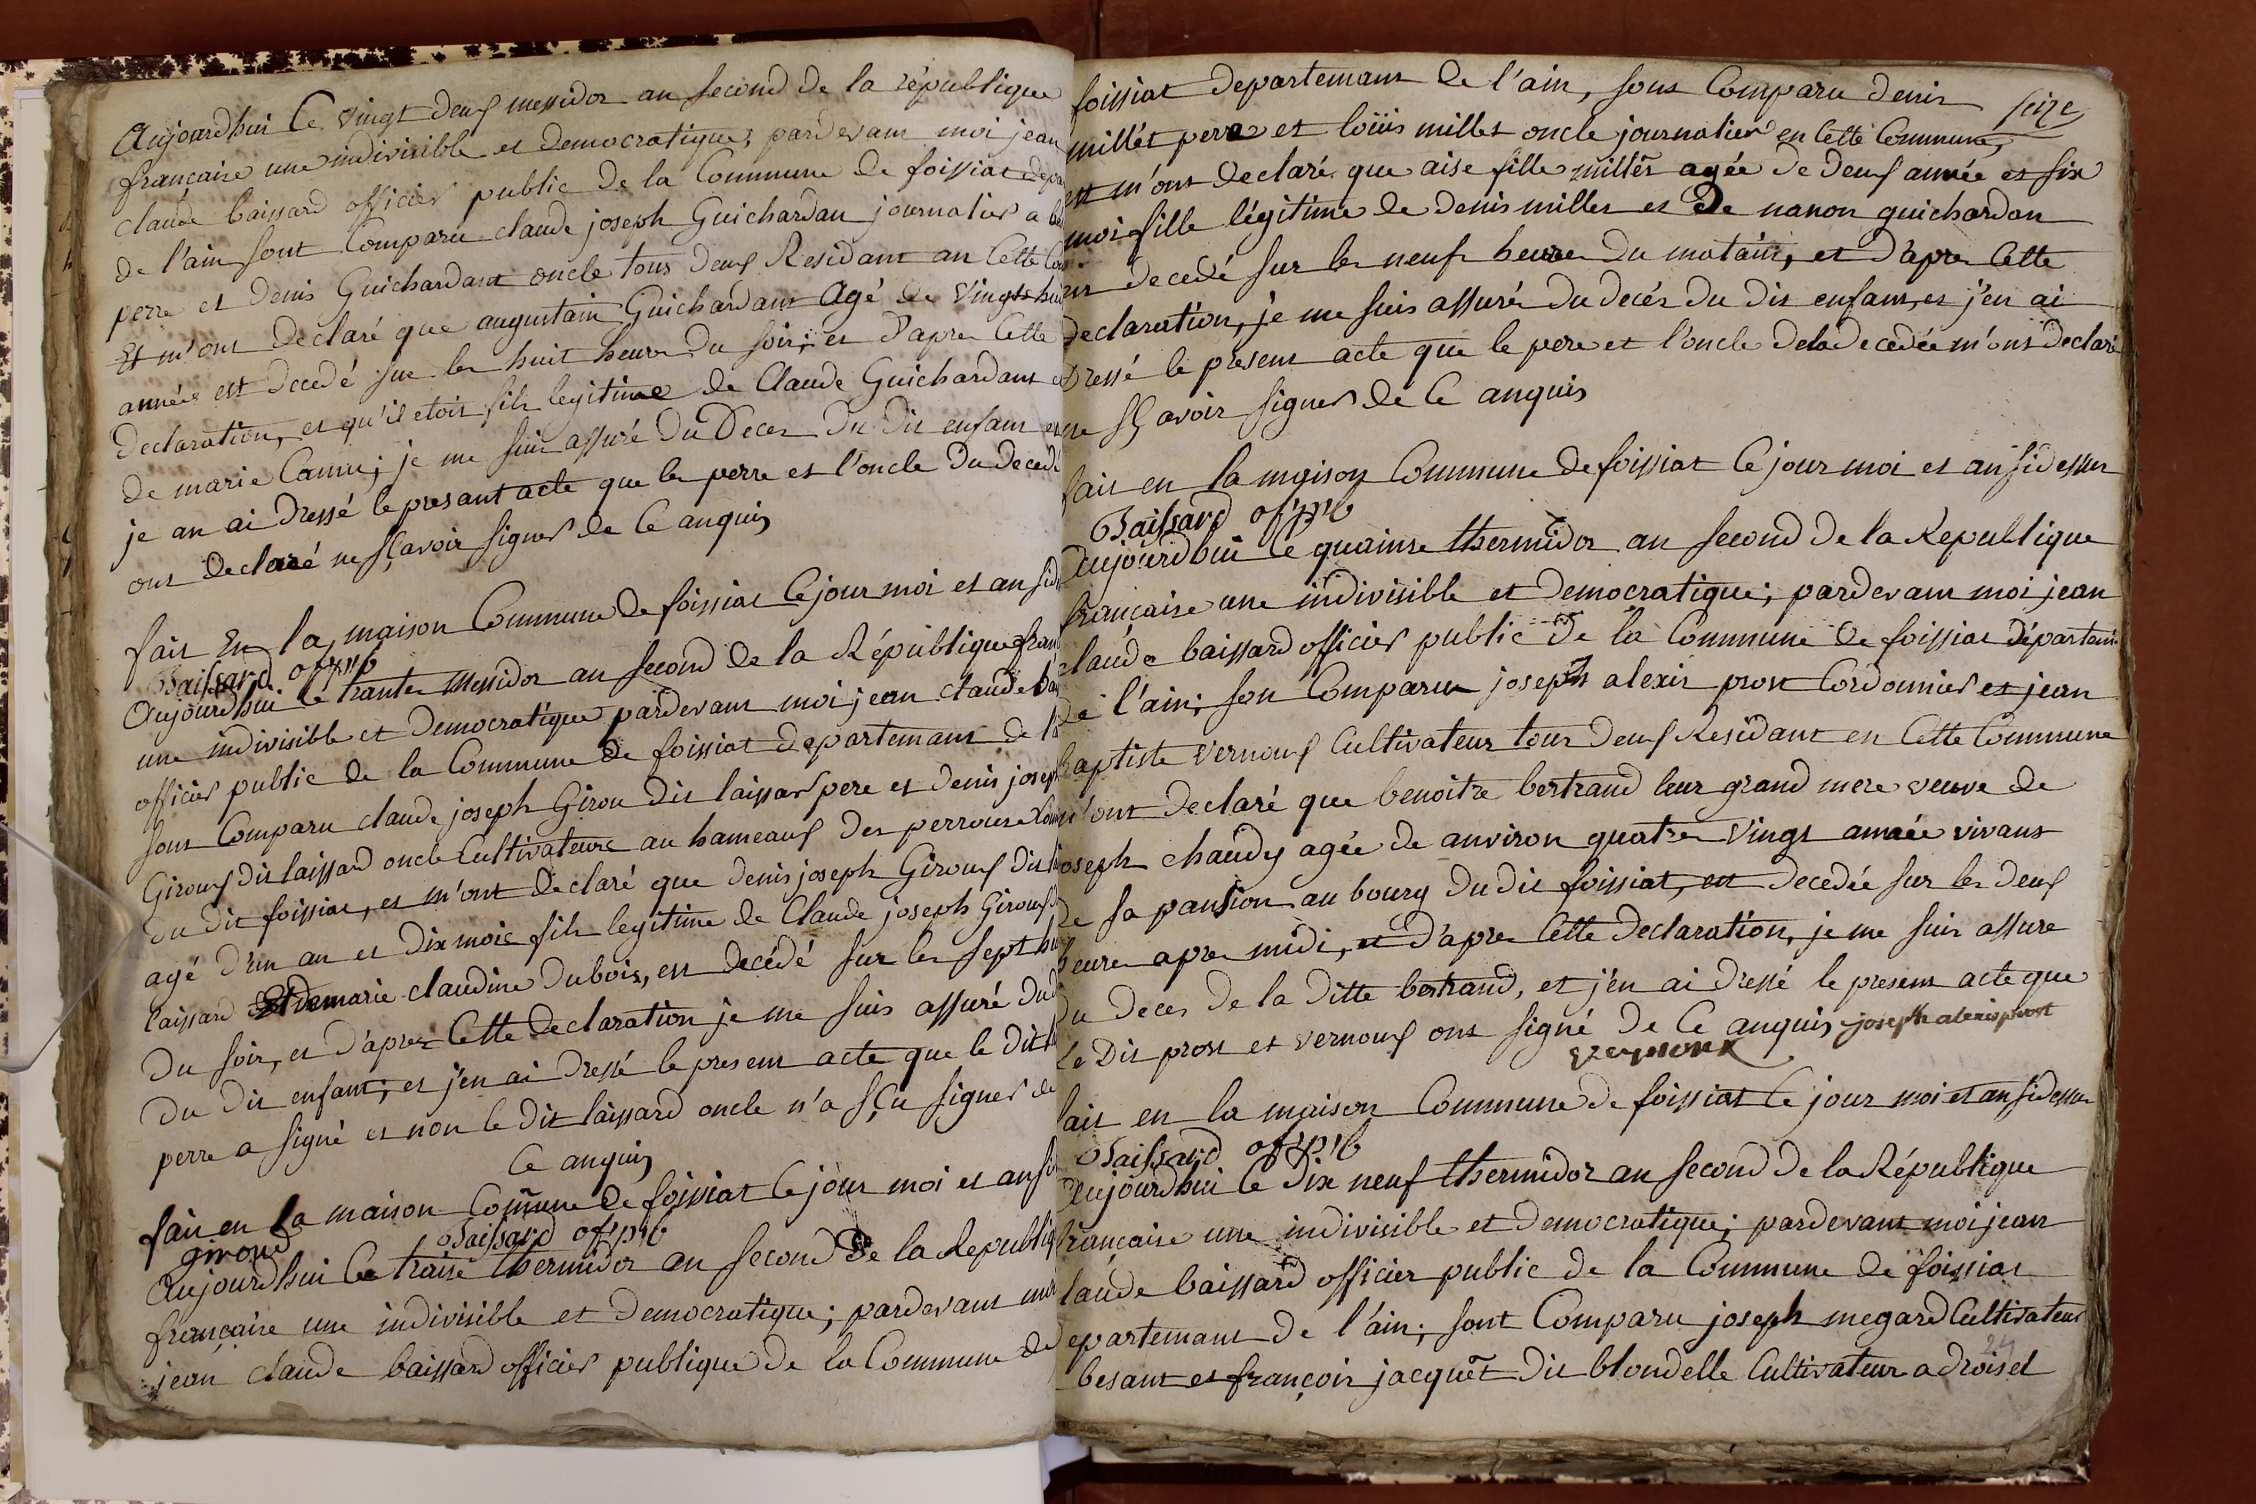 Aujourdhui Ce vingt deux messidor an second de la république
française une indivisible et democratique; pardevant moi jean
claude baissard officier public de la Commune de foissiat depar
de l'ain sont Comparu claude joseph Guichardan journalier a
perre et denis Guichardant oncle tous deux Residant an Cette
Et m'ont declaré que augustain Guichardant Agé de vingts huit
année est decedé sur les huit heure du soir; et d'apres Cette
declaration, et qu'il etoit fils legitime de Claude Guichardant et
de marie Canne; je me suis assuré du Deces du dit enfant et
je an ai dressé le presant acte que les perre et l'oncle du decedé
ont declaré ne sçavoir signer de Ce anquis
fait En la maison Commune de foissiat Ce jour moi et an sid
Baissard of pub
Aujourdhui le trante messidor an second de la République fran
une indivisible et democratique pardevant moi jean claude bai
officier public de la Commune de foissiat departemant de l'a
sont Comparu claude joseph Girou dit laissar pere et denis joseph
Giroux dit laissard oncle Cultivateurs au hameaux des perrouse Com
du dit foissiat, et m'ont declaré que denis joseph Giroux dit l
agé d'un an et dix mois fils legitime de Claude joseph Giroux d
laissard Et de marie claudine dubois, est decédé sur les sept h
du soir, et d'apres Cette declaration je me suis assuré du d
du dit enfant; et j'en ai dressé le present acte que le dit l
perre a signé et non le dit laissard oncle n'a sçu signer de
Ce anquis
fait en la maison Comune de foissiat Ce jour moi et an si
giroud Baissard of pub
Aujourdhui Ce traise thermidor an second de la Republiq
française une indivisible et democratique; pardevant moi
jean claude baissard officier publique de la Commune de
foissiat departemant de l'ain, sont Comparu denis
seize
millet perre et loüis millet oncle journalier en Cette Commune,
et m'ont declaré que aise fille millet agée de deux année et six
moi fille légitime de denis millet et de nanon guichardon
est decedé sur les neuf heure du matain, et d'apres Cette
declaration, je me suis assuré du decés du dit enfant, et j'en ai
dressé le present acte que le pere et l'oncle de la decedée m'ont declaré
ne sçavoir signer de Ce anquis
fait en la maison Commune de foissiat Ce jour moi et an sidessus
Baissard of pub
Aujourdhui le quainse thermidor an second de la Republique
française une indivisible et democratique; pardevant moi jean
claude baissard officier public de la Commune de foissiat départem
de l'ain; son Comparu joseph alexis prost Cordonnier et jean
baptiste vernoux Cultivateur tous deux Residant en Cette Commune
m'ont declaré que benoitre bertrand leur grand mere veuve de
joseph chaudy agée de anviron quatre vingt année vivant
de sa pansion au bourg du dit foissiat, est decedée sur les deux
heure apres midi, et d'apres Cette declaration, je me suis assure
du deces de la ditte bertrand, et j'en ai dressé le present acte que
Le dit prost et vernoux ont signé de Ce anquis joseph alexis prost
fait en la maison Commune de foissiat Ce jour moi et an sidessus
Baissard of pub
Aujourdhui Ce dix neuf thermidor an second de la République
française une indivisible et democratique; pardevant moi jean
claude baissard officier public de la Commune de foissiat
departemant de l'ain; sont Comparu joseph megard Cultivateur
24
besant et françois jacquet dit blondelle Cultivateur a droisel